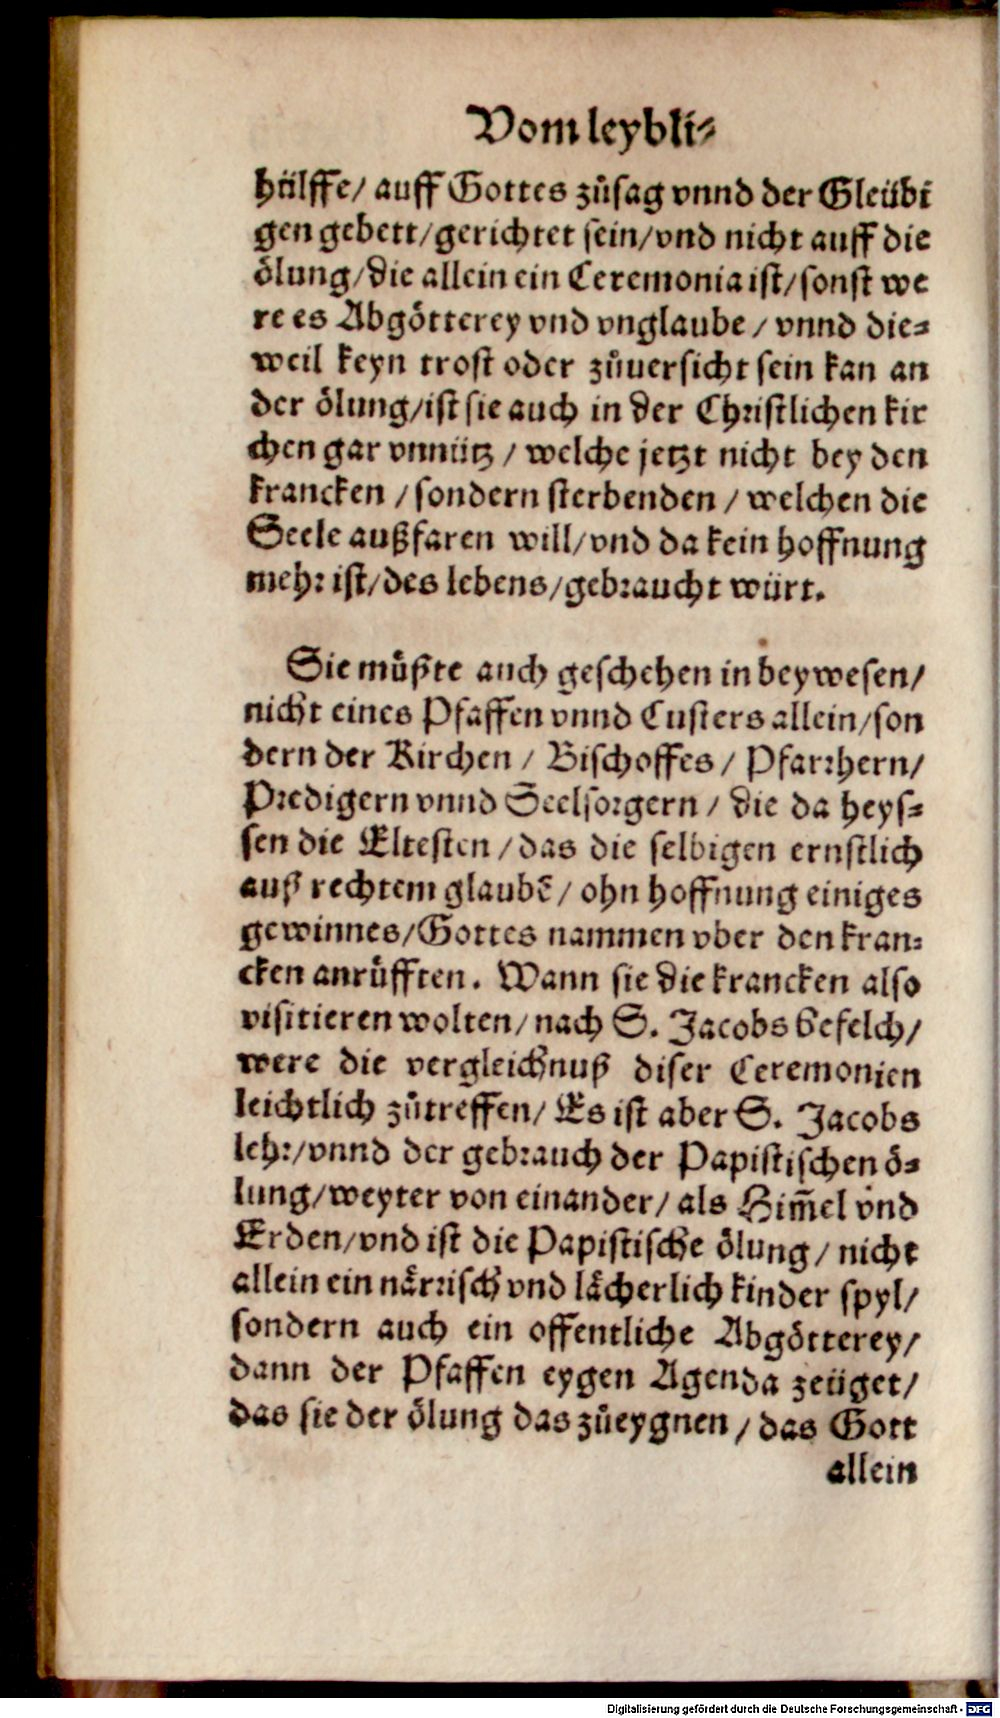 Vom leybli⸗
hülffe/ auff Gottes zůsag vnnd der Gleübi
gen gebett/gerichtet sein/vnd nicht auff die
ölung/die allein ein Ceremonia ist/sonst we
re es Abgötterey vnd vnglaube / vnnd die⸗
weil keyn trost oder zůuersicht sein kan an
der ölung/ist sie auch in der Christlichen kir
chen gar vnnütz / welche jetzt nicht bey den
krancken / sondern sterbenden / welchen die
Seele außfaren will/vnd da kein hoffnung
mehr ist/des lebens/gebraucht würt.
Sie müßte auch geschehen in beywesen/
nicht eines Pfaffen vnnd Custers allein/son
dern der Kirchen / Bischoffes / Pfarrhern/
Predigern vnnd Seelsorgern / die da heys⸗
sen die Eltesten / das die selbigen ernstlich
auß rechtem glaubē/ ohn hoffnung einiges
gewinnes/Gottes nammen vber den kran⸗
cken anrüfften. Wann sie die krancken also
visitieren wolten/ nach S. Jacobs befelch/
were die vergleichnuß diser Ceremonien
leichtlich zůtreffen/ Es ist aber S. Jacobs
lehr/vnnd der gebrauch der Papistischen ö⸗
lung/weyter von einander/ als Him̄el vnd
Erden/vnd ist die Papistische ölung / nicht
allein ein närrisch vnd lächerlich kinder spyl/
sondern auch ein offentliche Abgötterey/
dann der Pfaffen eygen Agenda zeüget/
das sie der ölung das zůeygnen / das Gott
allein
Digitalisierung gefördert durch die Deutsche Forschungsgemeinschaft - DFG